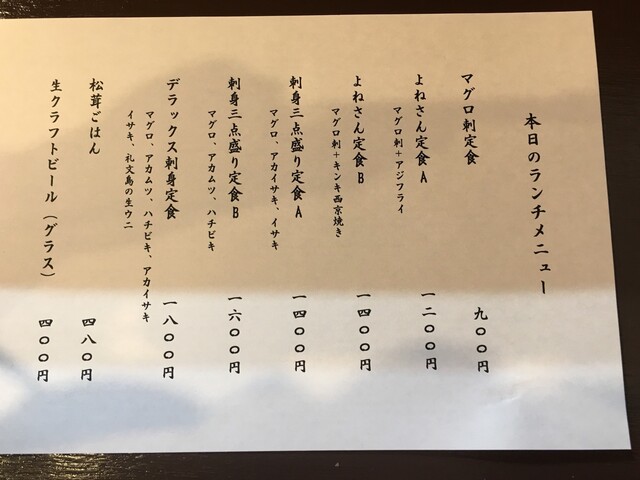 本日のランチメニュー
マグロ刺定食 九〇〇円
よねさん定食A 一二〇〇円
マグロ刺+アジフライ
よねさん定食B 一四〇〇円
マグロ刺+キンキ西京焼き
刺身三点盛り定食A 一四〇〇円
マグロ、アカイサキ、イサキ
刺身三点盛り定食B 一六〇〇円
マグロ、アカムツ、ハチビキ
デラックス刺身定食 一八〇〇円
マグロ、アカムツ、ハチビキ、アカイサキ
イサキ、礼文島の生ウニ
松茸ごはん 四八〇円
生クラフトビール(グラス) 四〇〇円